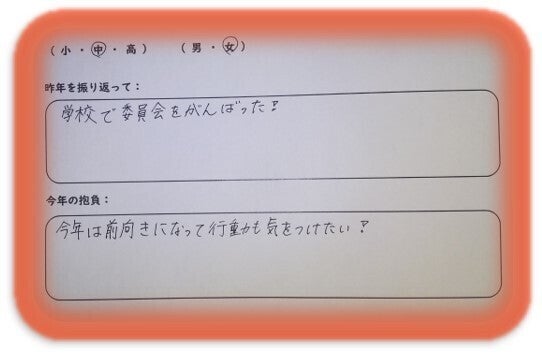 （ 小 ・ 中 ・ 高 ）　（ 男 ・ 女 ）
昨年を振り返って：
学校で委員会をがんばった！
今年の抱負：
今年は前向きになって行動も気をつけたい！